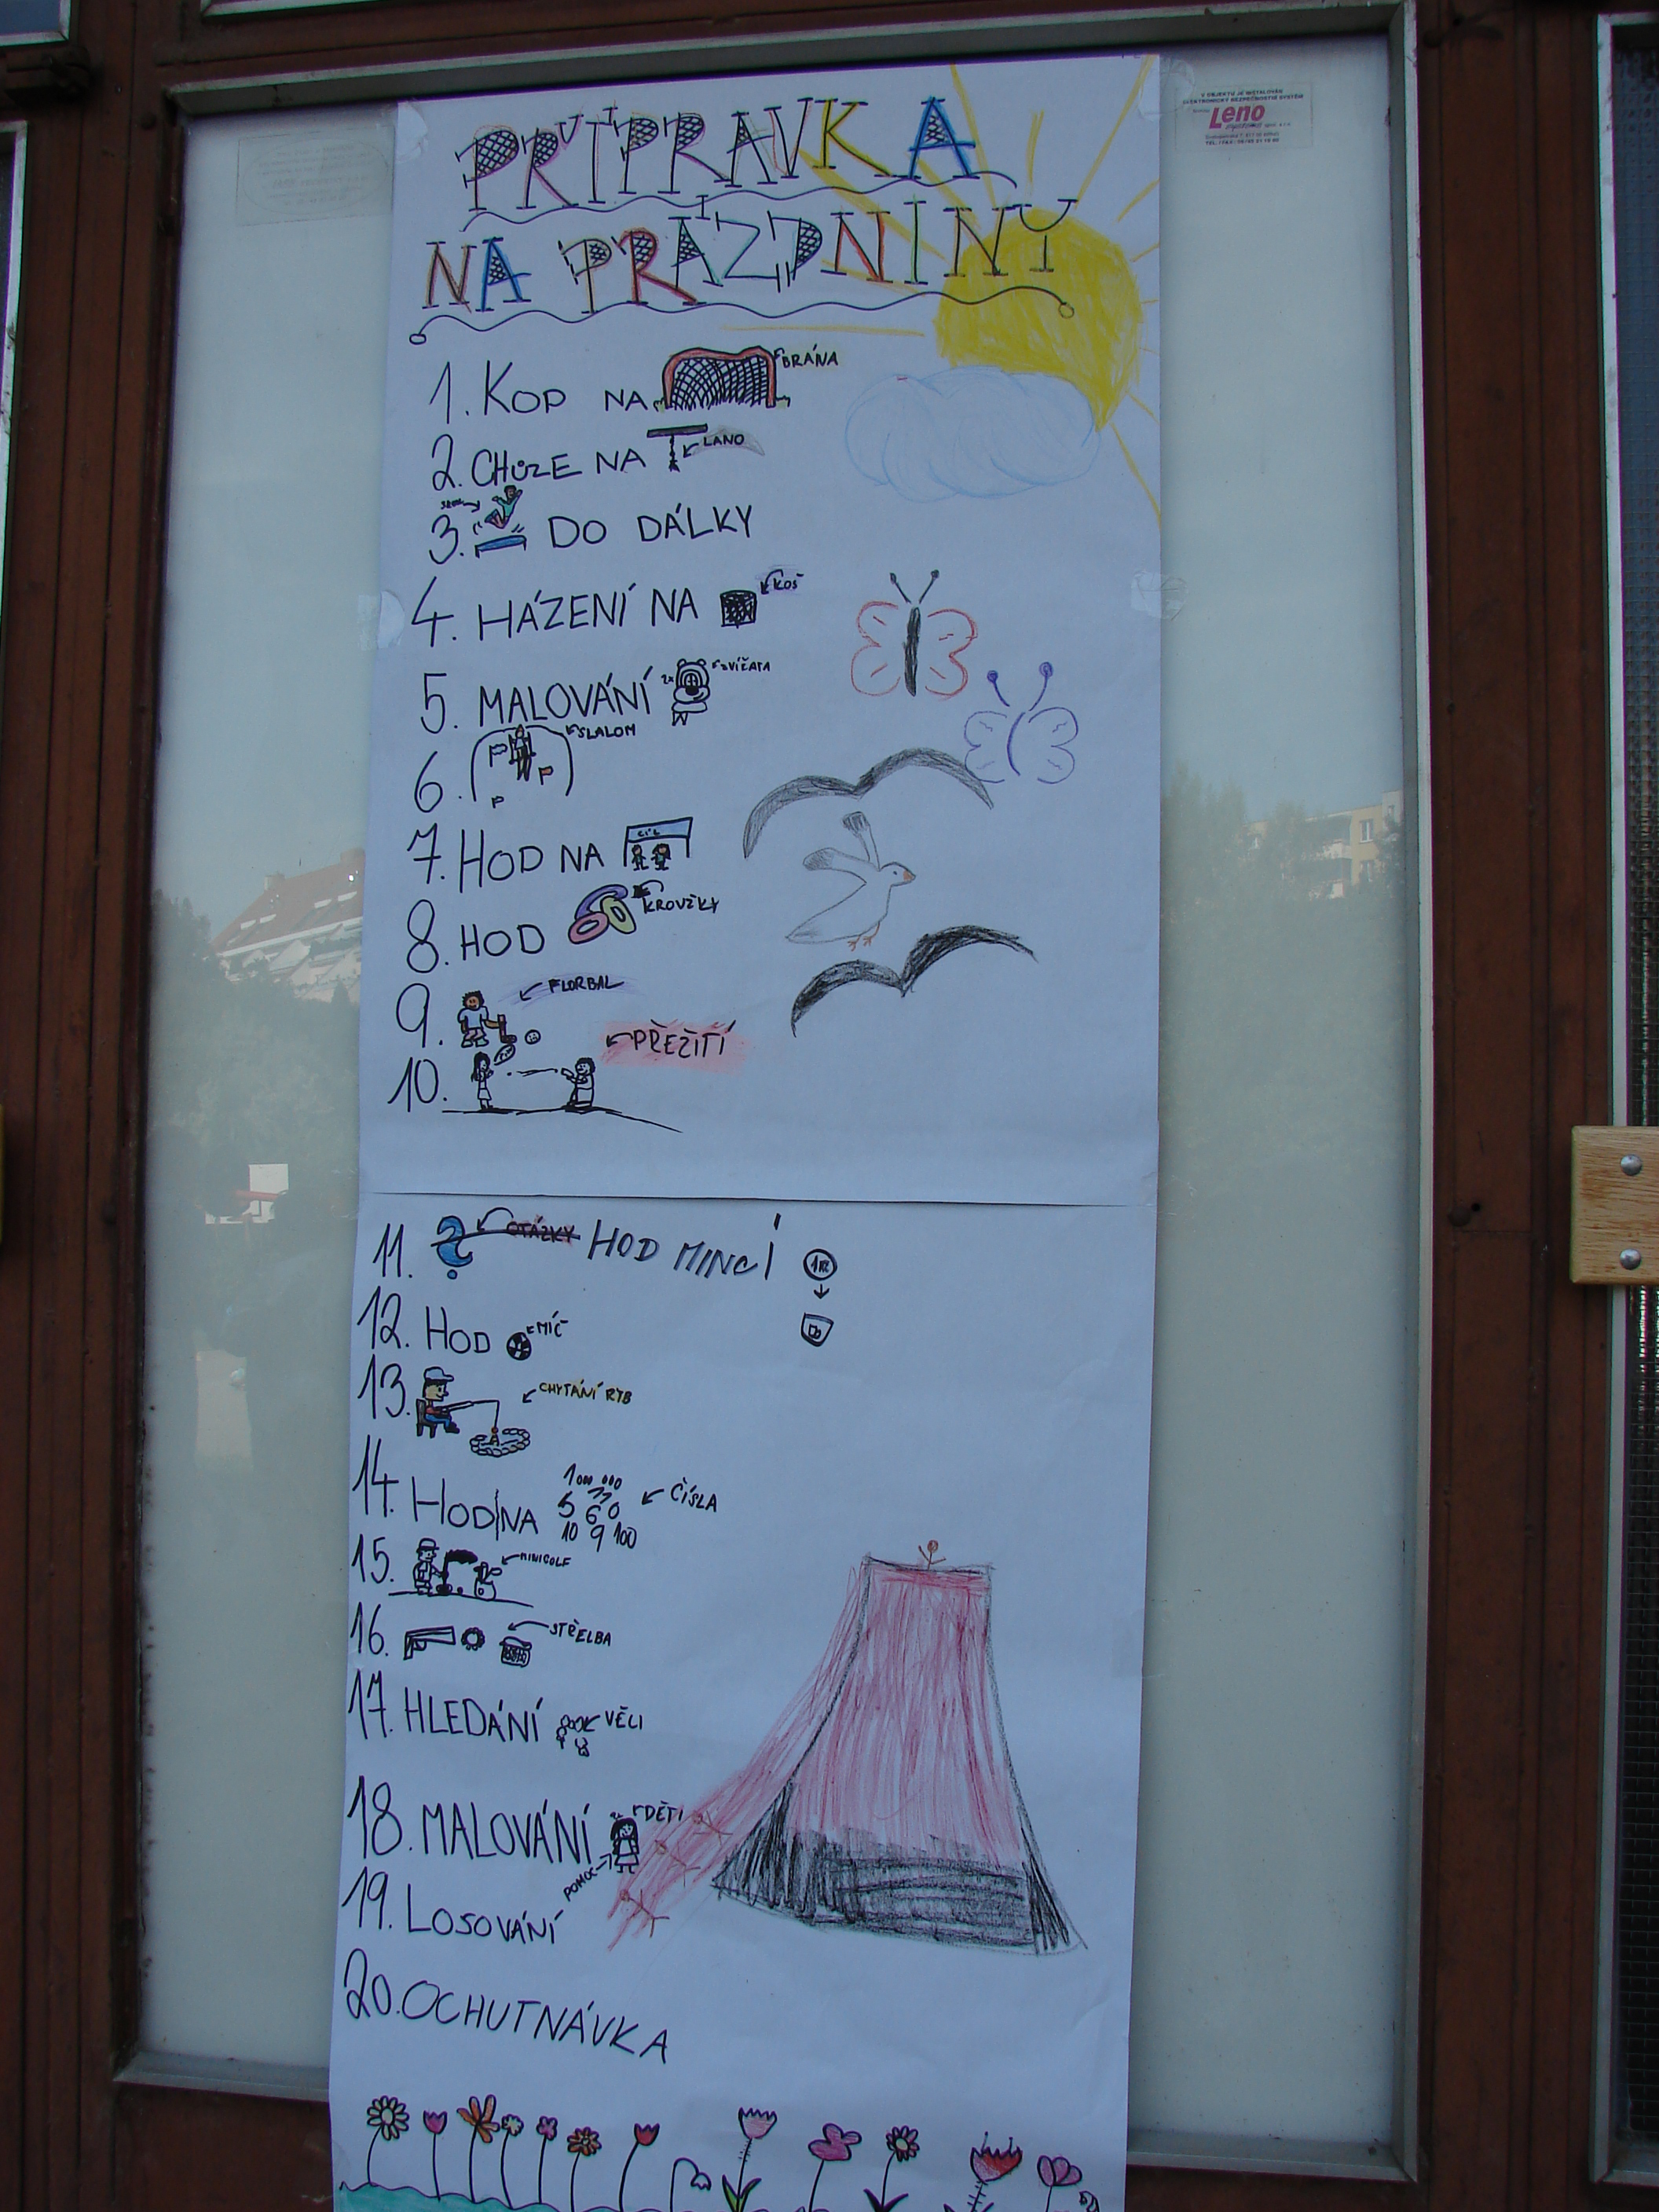 PŘÍPRAVKA
NA PRÁZDNINY
1. KOP NA BRÁNA
2. CHŮZE NA LANO
3. DO DÁLKY
4. HÁZENÍ NA KOŠ
5. MALOVÁNÍ 2x ZVÍŘATA
6. SLALOM
7. HOD NA CÍL
8. HOD KROUŽKY
9. FLORBAL
10. PŘEŽITÍ
11. OTÁZKY HOD MINCÍ 1 Kč
12. HOD MÍČ
13. CHYTÁNÍ RYB
14. HOD NA ČÍSLA
1000 000
5 6 0
10 9 100
15. MINIGOLF
16. STŘELBA
17. HLEDÁNÍ VĚCI
18. MALOVÁNÍ DĚTI
POMOC
19. LOSOVÁNÍ
20. OCHUTNÁVKA
V OBJEKTU JE INSTALOVÁN
ELEKTRONICKÝ BEZPEČNOSTNÍ SYSTÉM
Leno